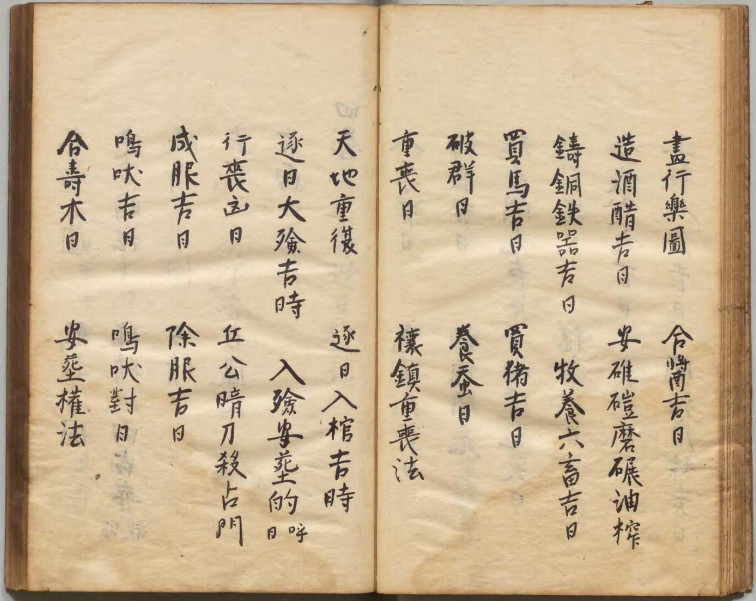 畫行樂圖 合醬吉日
造酒醋吉日 安碓磑磨碾油榨
鑄銅鉄器吉日 牧養六畜吉日
買馬吉日 買猪吉日
破群日 養蚕日
重喪日 禳鎮重喪法
天地重復 逐日入棺吉時
逐日大殮吉時 入殮安葬的呼日
行喪凶日 丘公暗刀殺占門
成服吉日 除服吉日
鳴吠吉日 鳴吠對日
合壽木日 安葬權法